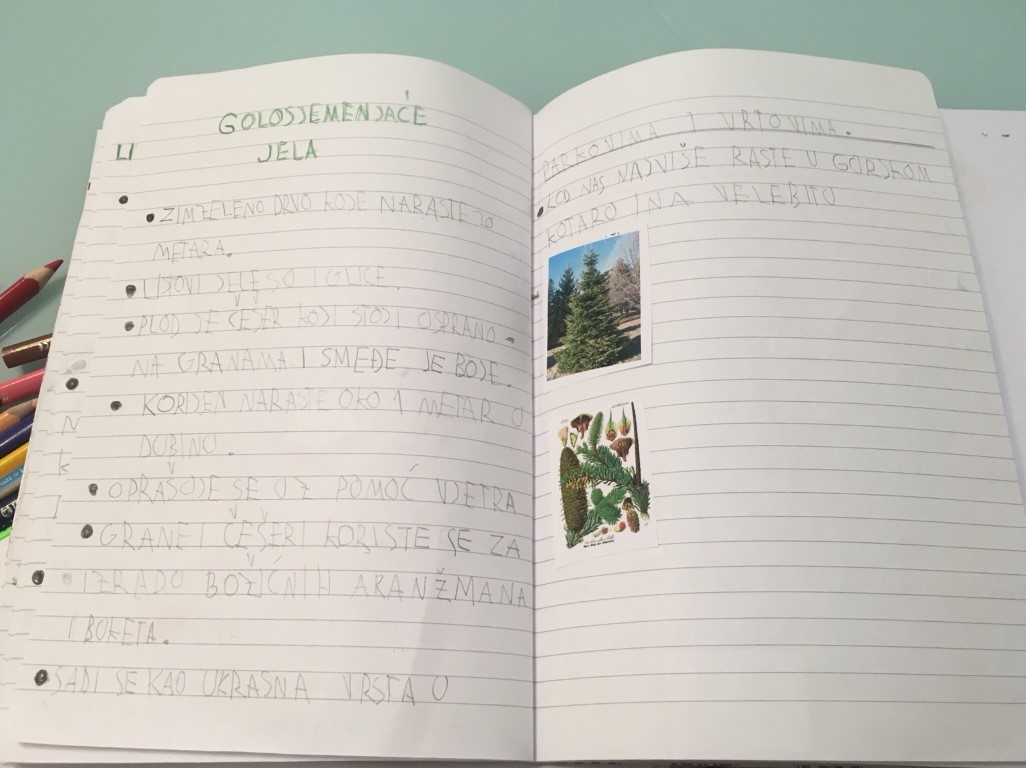 GOLOSJEMENJAČE
LI
JELA
• ZIMZELENO DRVO KOJE NARASTE 20
METARA.
• LISOVI JELE SO IGLICE.
• PLOD JE ČEŠER KOJI STOJI OSPRANO-
NA GRANAMA I SMEĐE JE BOJE.
• KORIJEN NARASTE OKO 1 METAR U
DUBINU.
• OPRAŠUJE SE UZ POMOĆ VJETRA
• GRANE I ČEŠERI KORISTE SE ZA
• IZRADU BOŽIĆNIH ARANŽMANA
I BUKETA.
• SADI SE KAO UKRASNA VRSTA U
PARKOVIMA I VRTOVIMA.
• KOD NAS NAJVIŠE RASTE U GORSKOM
KOTARO I NA VELEBITO